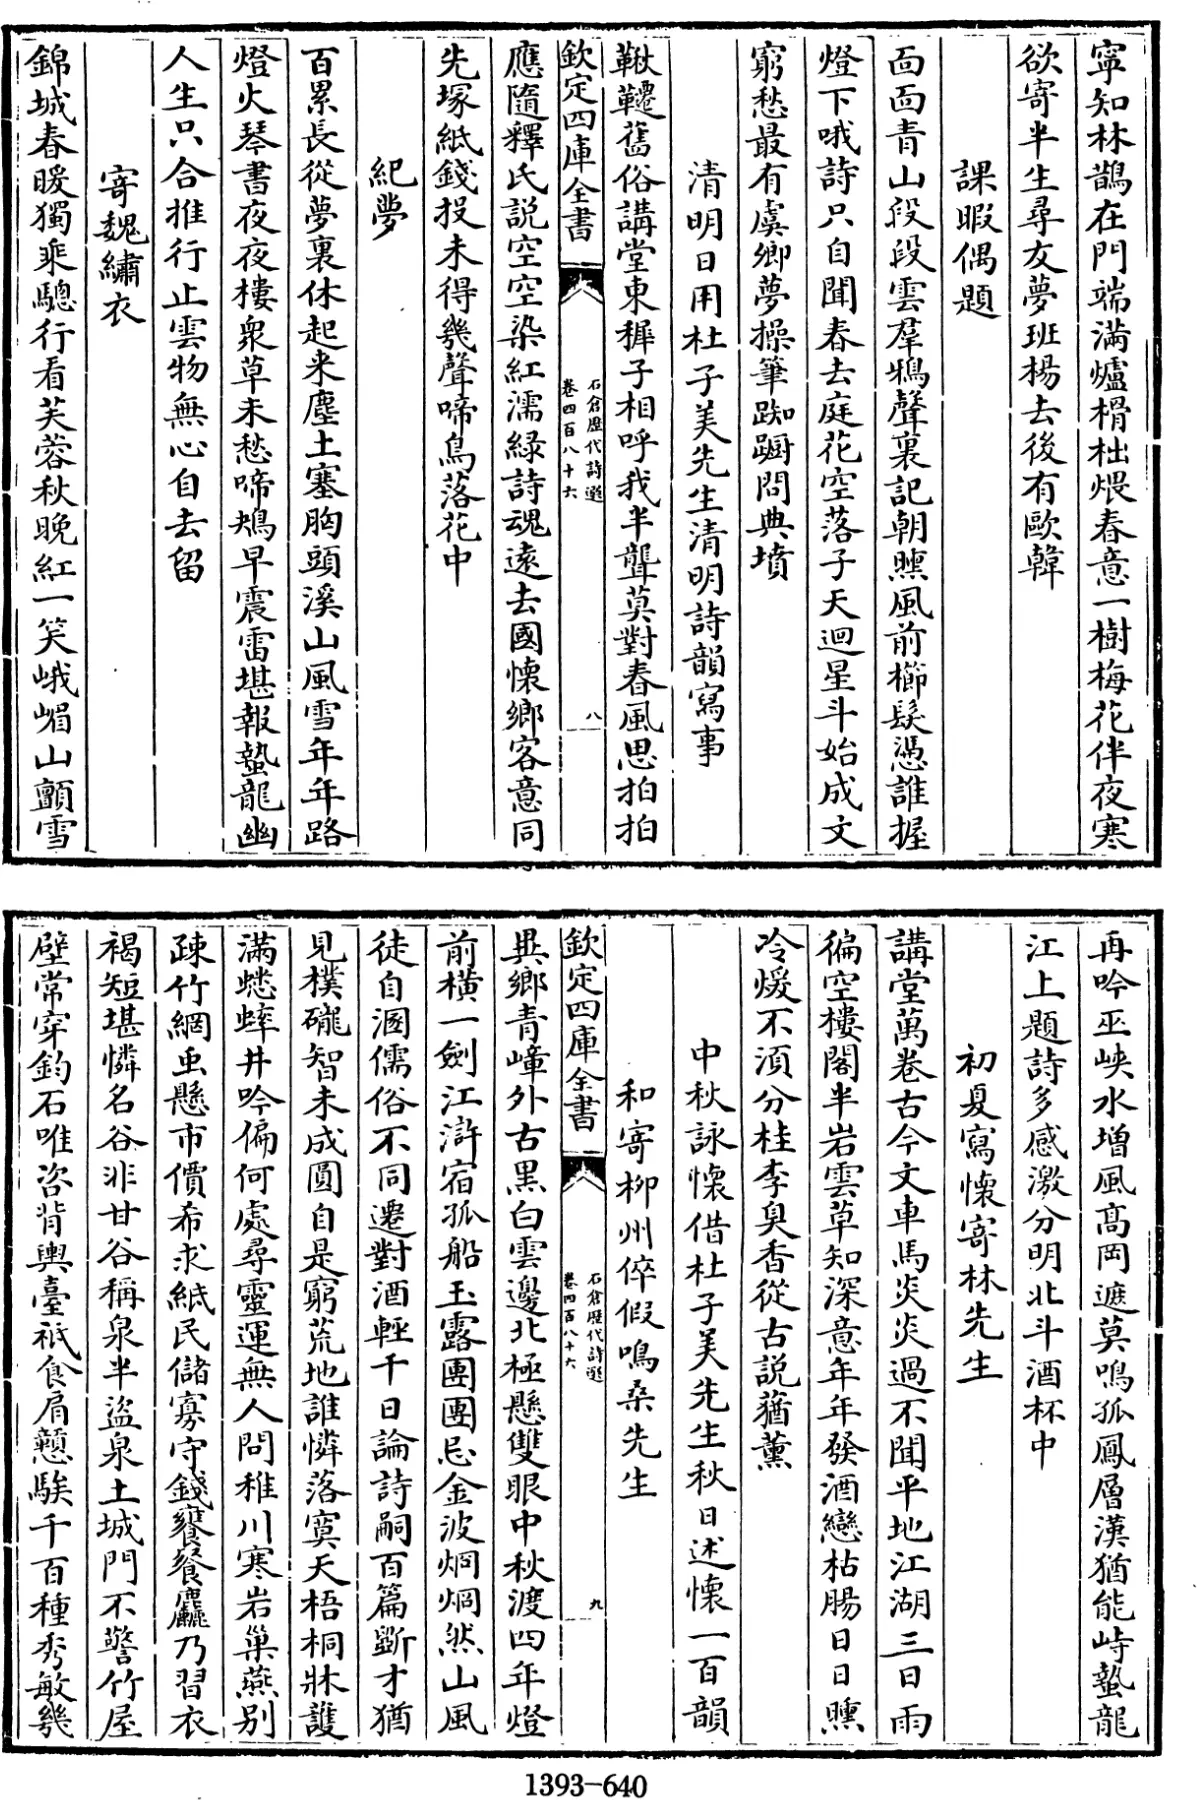 寜知林鵲在門端滿爐榾柮煨春意一樹梅花伴夜寒
欲寄半生尋友夢班楊去後有歐韓
課暇偶題
面面青山段段雲羣鴉聲裏記朝曛風前櫛髮憑誰握
燈下哦詩只自聞春去庭花空落子天迴星斗始成文
窮愁最有虞鄉夢操筆踟蹰問典墳
清明日用杜子美先生清明詩韻寫事
鞦韆舊俗講堂東穉子相呼我半聾莫對春風思拍拍
欽定四庫全書
石倉歷代詩選
卷四百八十六
八
應隨釋氏説空空染紅濡綠詩魂遠去國懷鄉客意同
先塚紙錢投未得幾聲啼鳥落花中
紀夢
百累長從夢裏休起来塵土塞胸頭溪山風雪年年路
燈火琴書夜夜樓衆草未愁啼鴂早震雷堪報蟄龍幽
人生只合推行止雲物無心自去留
寄魏繡衣
錦城春暖獨乘驄行看芙蓉秋晚紅一笑峨嵋山顫雪
再吟巫峽水增風髙岡遮莫鳴孤鳳層漢猶能峙蟄龍
江上題詩多感激分明北斗酒杯中
初夏寫懷寄林先生
講堂萬卷古今文車馬炎炎過不聞平地江湖三日雨
徧空樓閣半岩雲草知深意年年發酒戀枯腸日日曛
冷煖不須分桂李臭香從古説蕕薰
中秋詠懷借杜子美先生秋日述懷一百韻
和寄柳州倅假鳴桑先生
欽定四庫全書
石倉歷代詩選
卷四百八十六
九
異鄉青嶂外古黑白雲邊北極懸雙眼中秋渡四年燈
前横一劍江滸宿孤船玉露團團忌金波烱烱然山風
徒自溷儒俗不同遷對酒輕千日論詩嗣百篇斵才猶
見樸礲智未成圓自是窮荒地誰憐落寞天梧桐牀護
滿蟋蟀井吟偏何處尋靈運無人問稚川寒岩巢燕别
疎竹網虫懸市價希求紙民儲寡守錢饔餐麤乃習衣
褐短堪憐名谷非甘谷稱泉半盜泉土城門不警竹屋
壁常穿鈞石唯咨背輿臺祇食肩戇騃千百種秀敏幾
1393-640